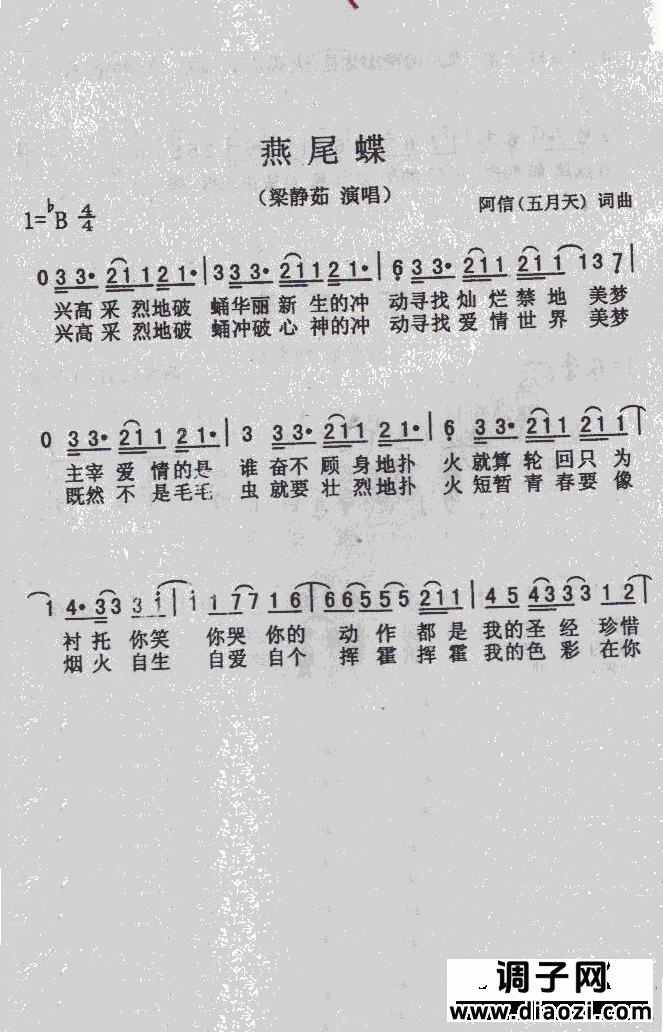 燕尾蝶
(梁静茹 演唱)
1=♭B 4/4
阿信(五月天) 词曲
0 3 3· 2 1 1 2 1· | 3 3 3· 2 1 1 2 1· | 6 3 3· 2 1 1 2 1 1 1 3 7 |
兴高 采 烈地破 蛹华丽新 生的冲 动寻找灿 烂禁 地 美梦
兴高 采 烈地破 蛹冲破心 神的冲 动寻找爱 情世 界 美梦
0 3 3· 2 1 1 2 1· | 3 3 3· 2 1 1 2 1· | 6 3 3· 2 1 1 2 1 1 |
主宰 爱 情的是 谁 奋不 顾 身地扑 火 就算 轮 回只 为
既然 不 是毛毛 虫 就要 壮 烈地扑 火 短暂 青 春要 像
1 4· 3 3 3 1 | 1 1 7 7 1 6 | 6 6 5 5 5 2 1 1 | 4 5 4 3 3 3 1 2 |
衬托 你笑 你哭 你的 动 作 都 是 我的圣 经 珍惜
烟火 自生 自爱 自个 挥 霍 挥 霍 我的色 彩 在你
调子网
www.diaozi.com